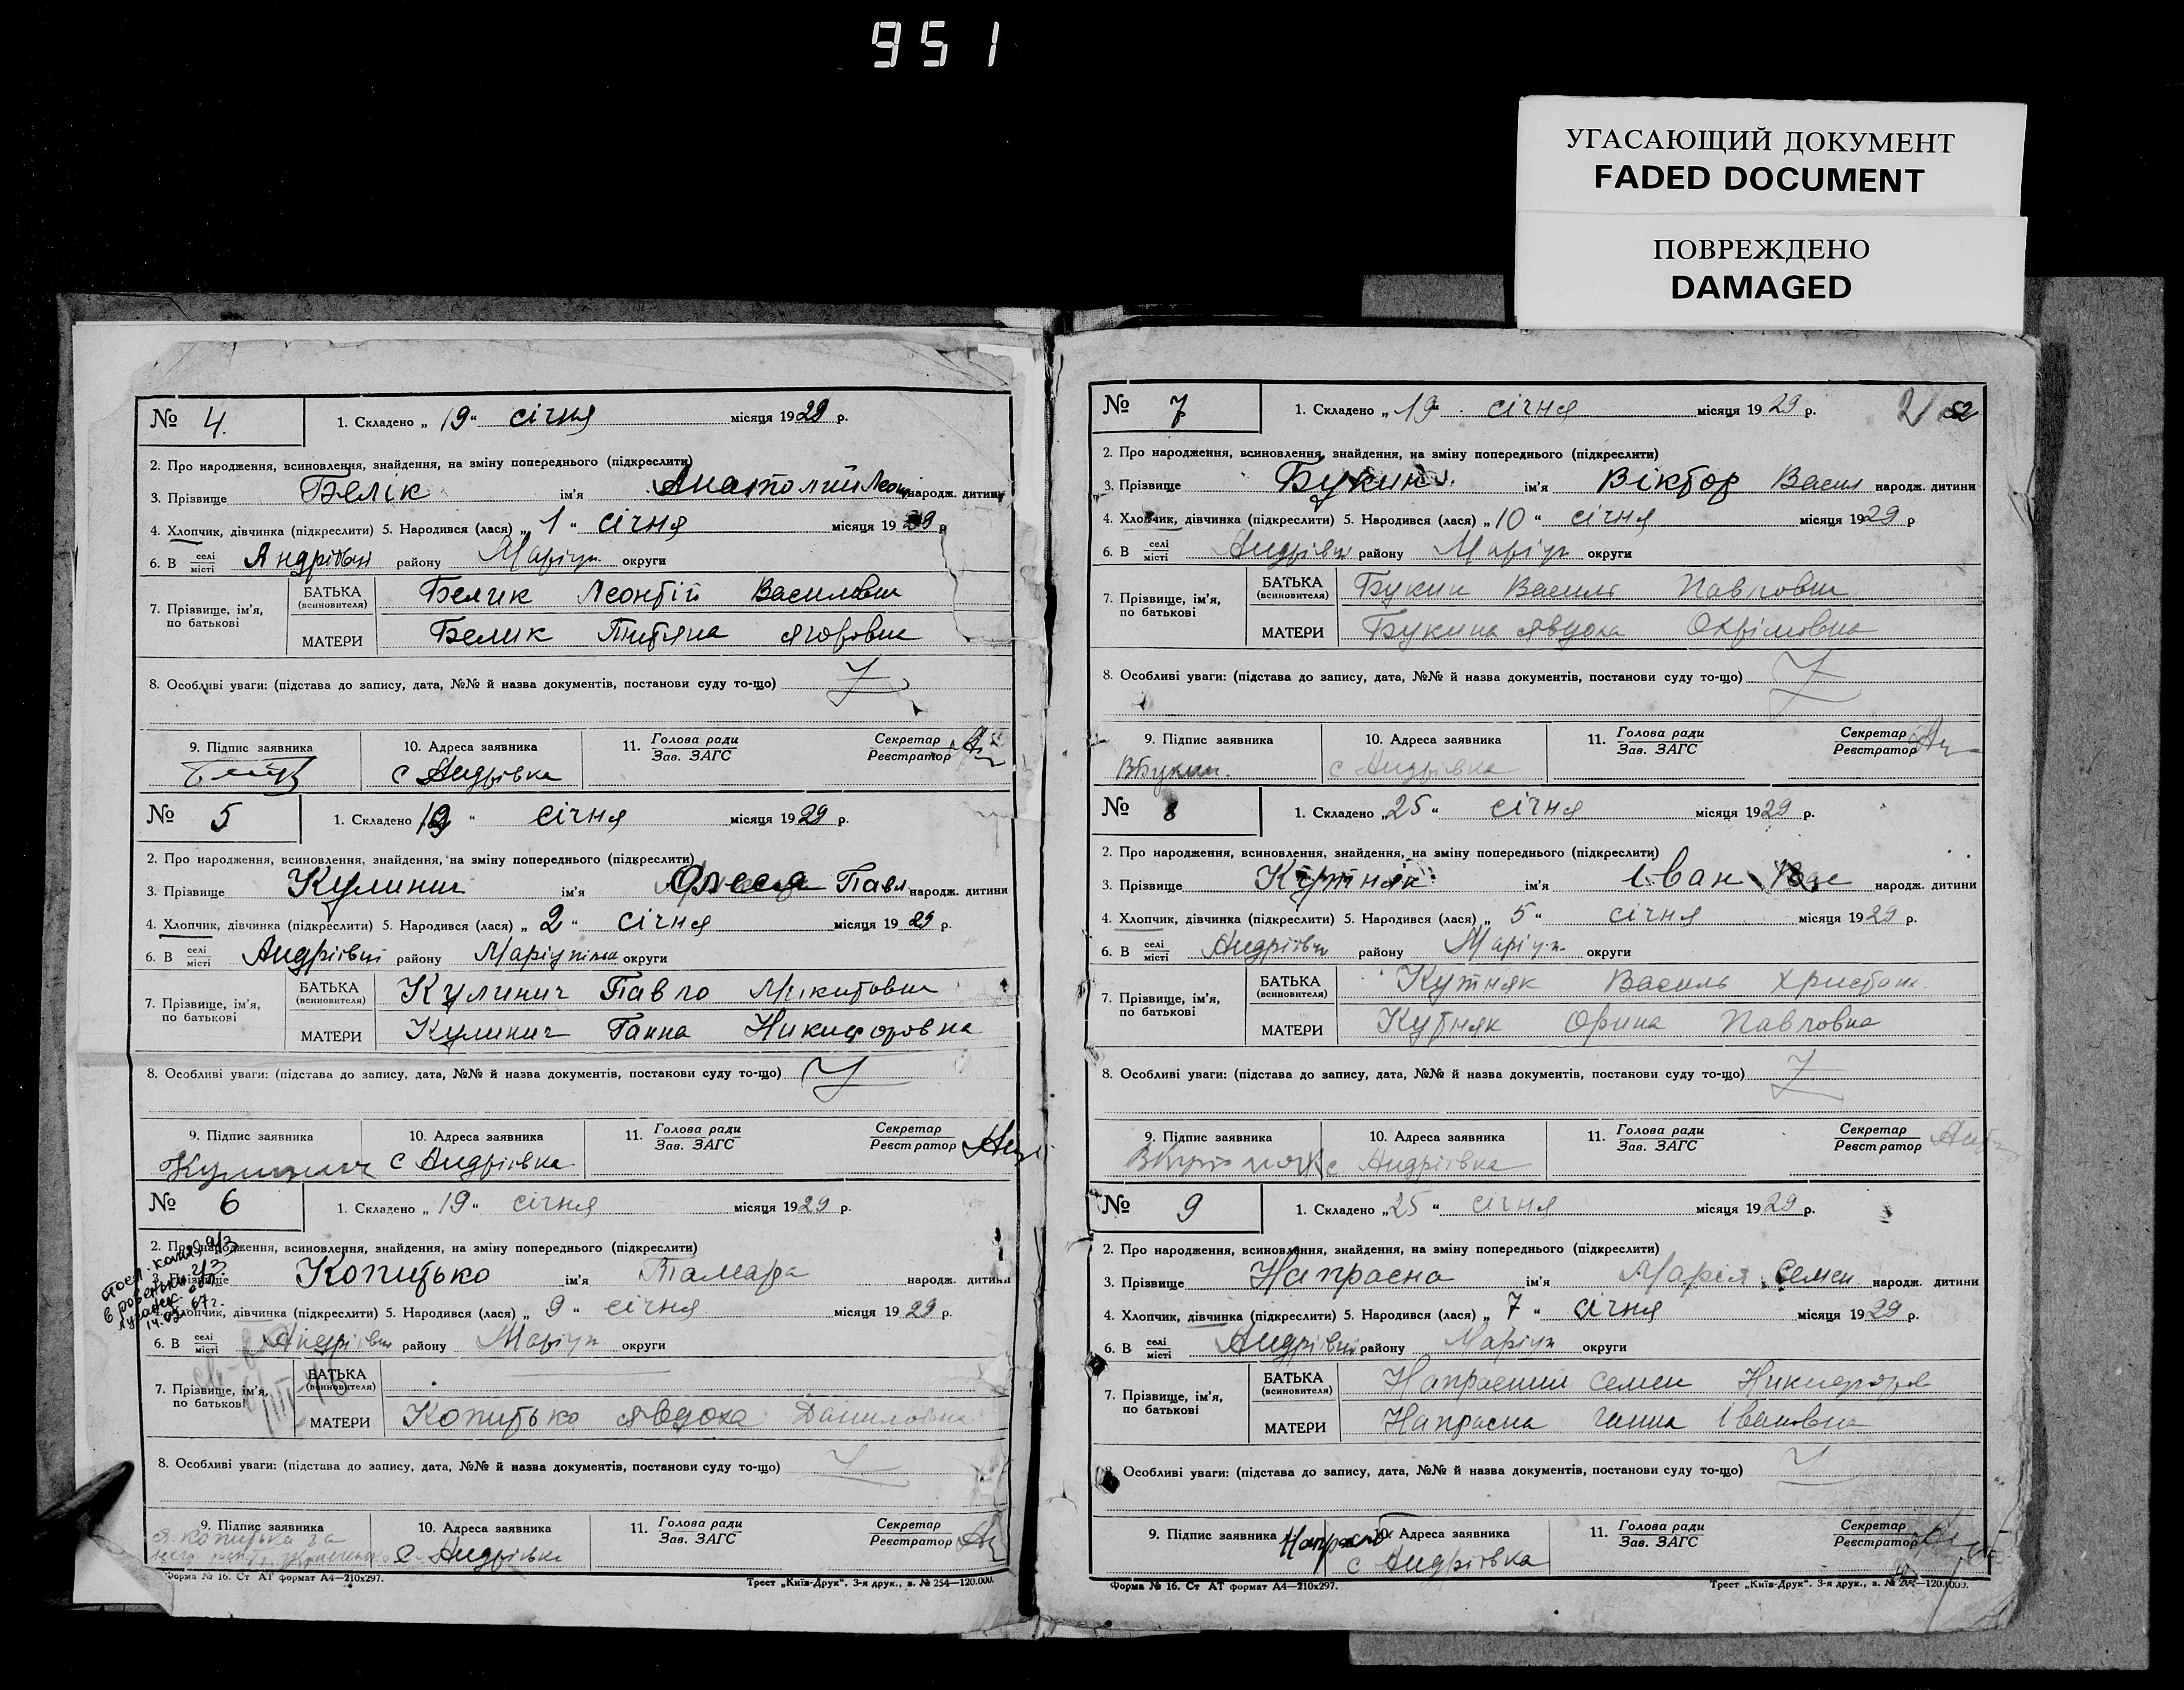 951
УГАСАЮЩИЙ ДОКУМЕНТ
FADED DOCUMENT
ПОВРЕЖДЕНО
DAMAGED
№ 4. 1. Складено „19“ січня місяця 1929 р.
2. Про народження, всиновлення, знайдення, на зміну попереднього (підкреслити)
3. Прізвище Белік ім'я Анатолий Леон народж. дитини
4. Хлопчик, дівчинка (підкреслити) 5. Народився (лася) „1“ січня місяця 1929 р
6. В селі місті Андріівці району Маріуп. округи
7. Прізвище, ім'я, по батькові
БАТЬКА (всиновителя) Белик Леонтій Василович
МАТЕРИ Белик Титяна Ягоровна
8. Особливі уваги: (підстава до запису, дата, №№ й назва документів, постанови суду то-що)
9. Підпис заявника 10. Адреса заявника 11. Голова ради Зав. ЗАГС Секретар Реєстратор
с Андріівка
№ 5 1. Складено „19“ січня місяця 1929 р.
2. Про народження, всиновлення, знайдення, на зміну попереднього (підкреслити)
3. Прізвище Кулинич ім'я Олеся Павл народж. дитини
4. Хлопчик, дівчинка (підкреслити) 5. Народився (лася) „2“ січня місяця 1929 р.
6. В селі місті Андріівці району Маріупільск округи
7. Прізвище, ім'я, по батькові
БАТЬКА (всиновителя) Кулинич Павло Микитович
МАТЕРИ Кулинич Ганна Никифоровна
8. Особливі уваги: (підстава до запису, дата, №№ й назва документів, постанови суду то-що)
9. Підпис заявника 10. Адреса заявника 11. Голова ради Зав. ЗАГС Секретар Реєстратор
Кулинич с Андріівка
№ 6 1. Складено „19“ січня місяця 1929 р.
2. Про народження, всиновлення, знайдення, на зміну попереднього (підкреслити)
3. Прізвище Копитько ім'я Тамара народж. дитини
4. Хлопчик, дівчинка (підкреслити) 5. Народився (лася) „9“ січня місяця 1929 р.
6. В селі місті Андріівці району Маріуп округи
7. Прізвище, ім'я, по батькові
БАТЬКА (всиновителя)
МАТЕРИ Копитько Явдоха Даниловна
8. Особливі уваги: (підстава до запису, дата, №№ й назва документів, постанови суду то-що)
9. Підпис заявника 10. Адреса заявника 11. Голова ради Зав. ЗАГС Секретар Реєстратор
Я. Копитька за
с Андріівка
Форма № 16. Ст АТ формат А4—210x297. Трест „Київ-Друк“. 3-я друк., в. № 254—120.000.
№ 7 1. Складено „19“ січня місяця 1929 р. 2
2. Про народження, всиновлення, знайдення, на зміну попереднього (підкреслити)
3. Прізвище Букин ім'я Віктор Васил народж. дитини
4. Хлопчик, дівчинка (підкреслити) 5. Народився (лася) „10“ січня місяця 1929 р
6. В селі місті Андріівці району Маріуп округи
7. Прізвище, ім'я, по батькові
БАТЬКА (всиновителя) Букин Василь Павлович
МАТЕРИ Букина Явдоха Охрімовна
8. Особливі уваги: (підстава до запису, дата, №№ й назва документів, постанови суду то-що)
9. Підпис заявника 10. Адреса заявника 11. Голова ради Зав. ЗАГС Секретар Реєстратор
ВБукин. с Андріівка
№ 8 1. Складено „25“ січня місяця 1929 р.
2. Про народження, всиновлення, знайдення, на зміну попереднього (підкреслити)
3. Прізвище Кутняк ім'я Іван народж. дитини
4. Хлопчик, дівчинка (підкреслити) 5. Народився (лася) „5“ січня місяця 1929 р.
6. В селі місті Андріівці району Маріуп. округи
7. Прізвище, ім'я, по батькові
БАТЬКА (всиновителя) Кутняк Василь Христіан.
МАТЕРИ Кутняк Орина Павловна
8. Особливі уваги: (підстава до запису, дата, №№ й назва документів, постанови суду то-що)
9. Підпис заявника 10. Адреса заявника 11. Голова ради Зав. ЗАГС Секретар Реєстратор
с Андріівка
№ 9 1. Складено „25“ січня місяця 1929 р.
2. Про народження, всиновлення, знайдення, на зміну попереднього (підкреслити)
3. Прізвище Напрасна ім'я Марія Семен народж. дитини
4. Хлопчик, дівчинка (підкреслити) 5. Народився (лася) „7“ січня місяця 1929 р.
6. В селі місті Андріівці району Маріуп округи
7. Прізвище, ім'я, по батькові
БАТЬКА (всиновителя) Напрасний Семен Никифоров
МАТЕРИ Напрасна Ганна Івановна
8. Особливі уваги: (підстава до запису, дата, №№ й назва документів, постанови суду то-що)
9. Підпис заявника 10. Адреса заявника 11. Голова ради Зав. ЗАГС Секретар Реєстратор
с Андріівка
Форма № 16. Ст АТ формат А4—210x297. Трест „Київ-Друк“. 3-я друк., в. № 254—120.000.